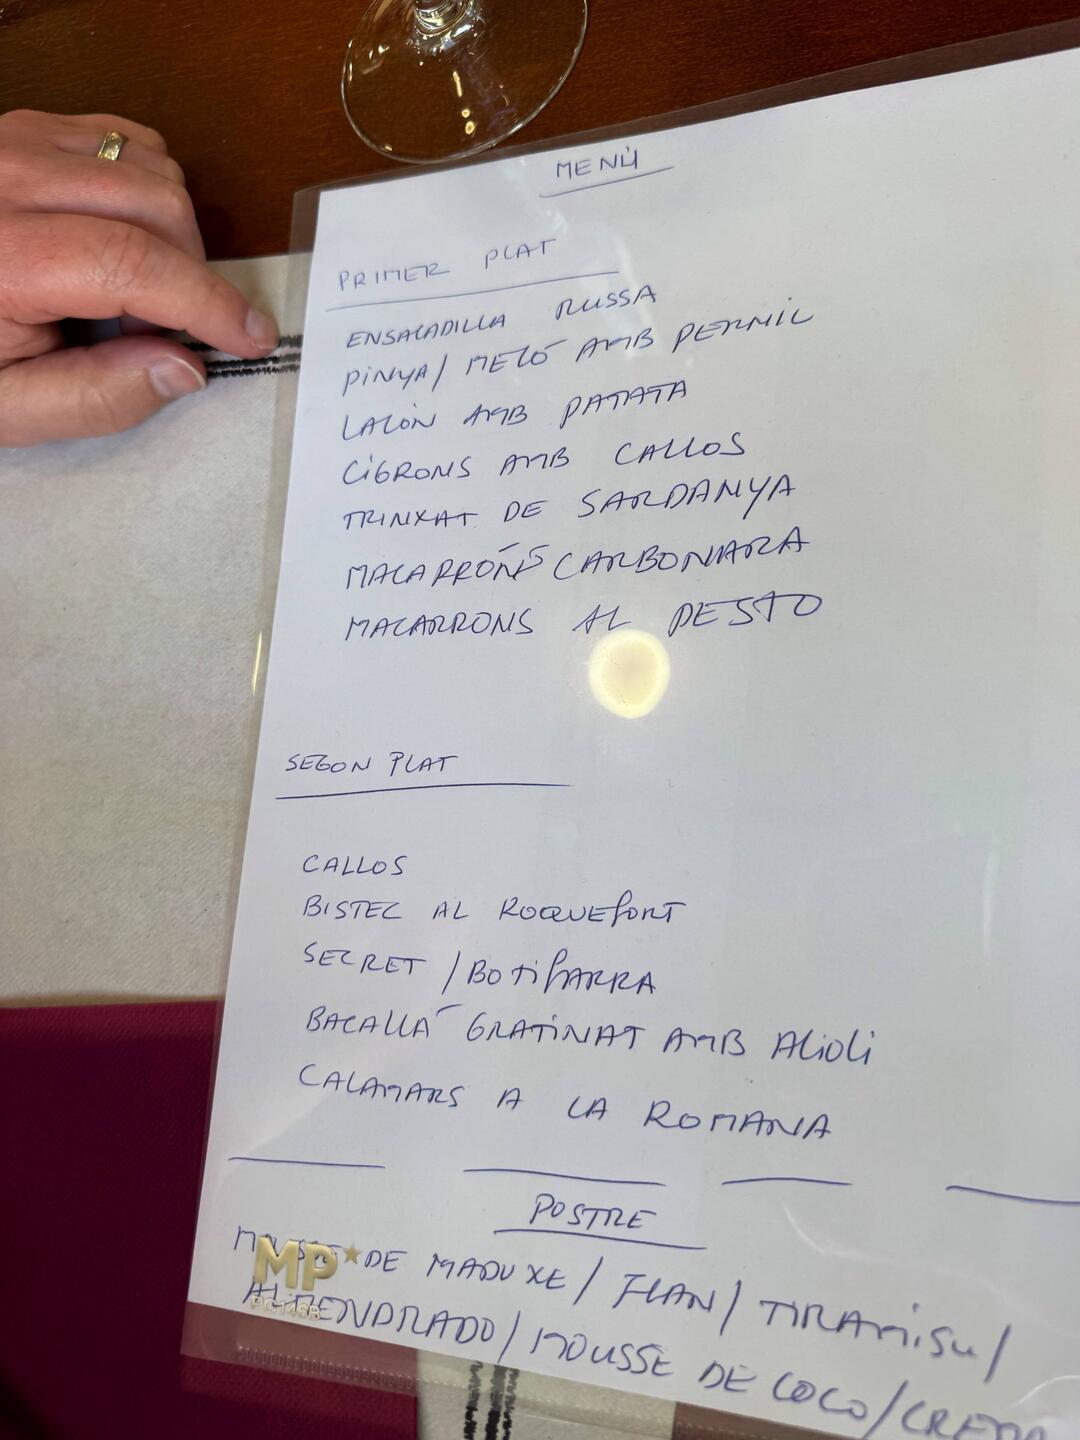 MENÚ
PRIMER PLAT
ENSALADILLA RUSSA
PINYA/ MELÓ AMB PERNIL
LACÓN AMB PATATA
CIGRONS AMB CALLOS
TRINXAT DE SARDANYA
MACARRONS CARBONARA
MACARRONS AL PESTO
SEGON PLAT
CALLOS
BISTEC AL ROQUEFORT
SECRET /BOTIFARRA
BACALLÁ GRATINAT AMB ALIOLI
CALAMARS A LA ROMANA
POSTRE
MOUSSE DE MADUXE/ FLAN/ TIRAMISU/
MP
ALMENDRADO/ MOUSSE DE COCO/CREMA